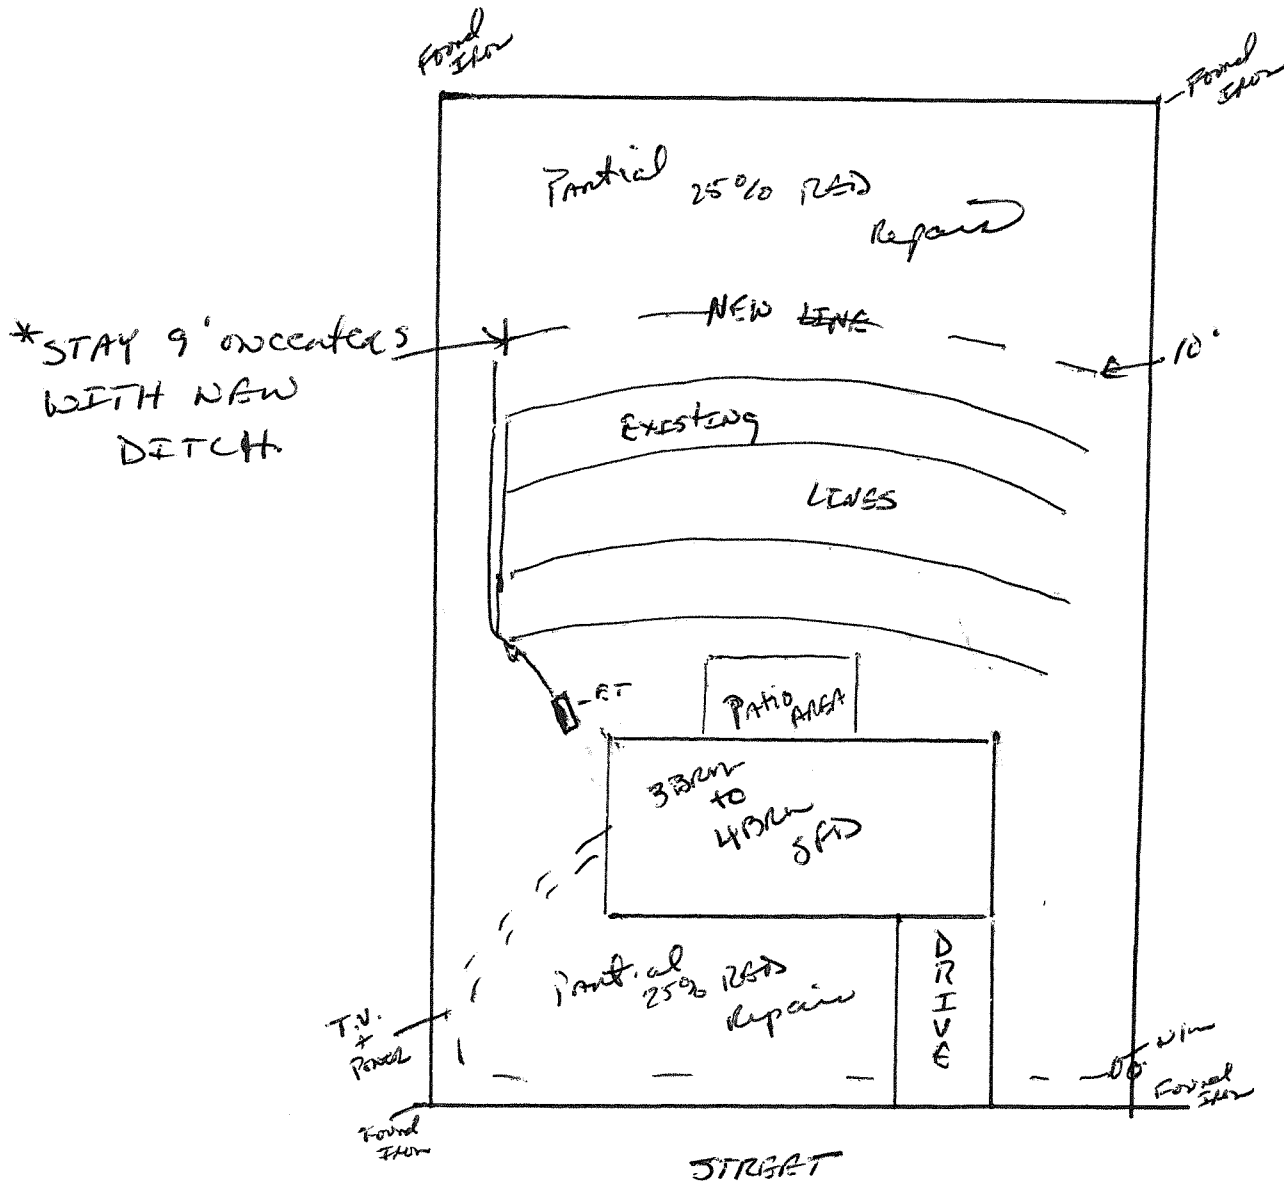 Found
Iron
Found
Iron
Partial 25% RED
Repair
NEW LINE
*STAY 9' ONCENTERS
WITH NEW
DITCH.
10'
EXISTING
LINES
PATIO
AREA
3BRM
to
4BRM
SFD
Partial
25% RED
Repair
DRIVE
T.V.
+
Power
Found
Iron
Found
Iron
STREET